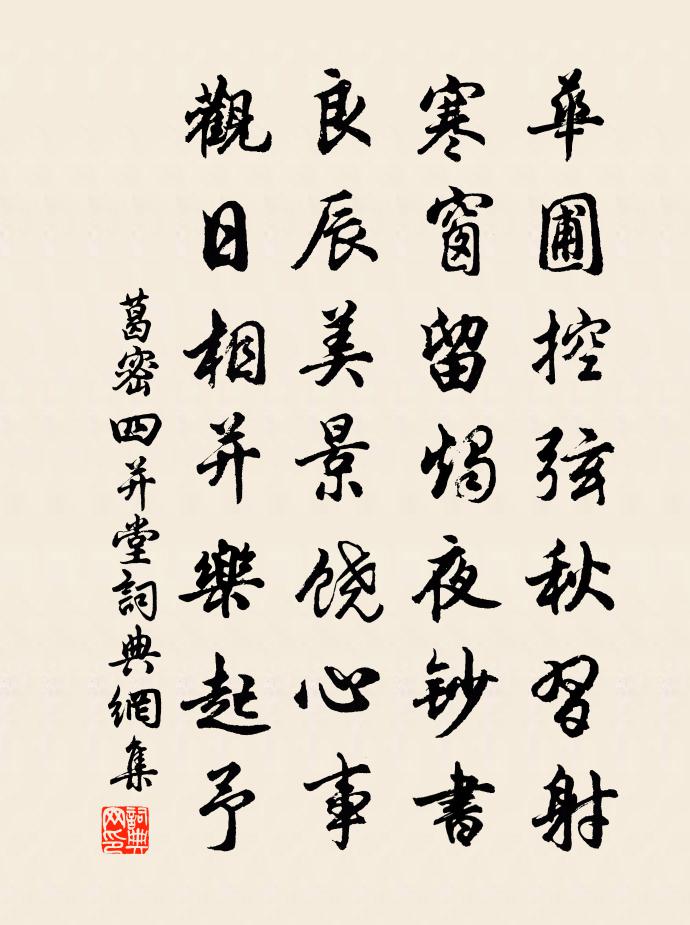 華圃控弦秋習射
寒窗留燭夜鈔書
良辰美景饒心事
觀日相并樂起予
葛密四并堂詞典網集
詞典網印